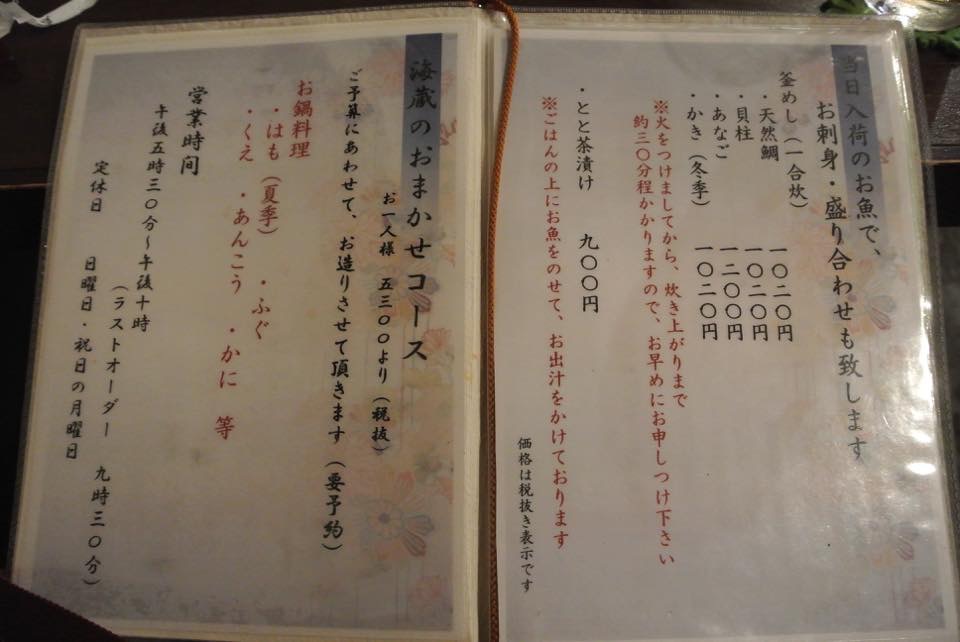 当日入荷のお魚で、
お刺身・盛り合わせも致します
釜めし（一合炊）
・天然鯛　一〇二〇円
・貝柱　一〇二〇円
・あなご　一二〇〇円
・かき（冬季）　一〇二〇円
※火をつけましてから、炊き上がりまで
約三〇分程かかりますので、お早めにお申しつけ下さい
・とと茶漬け　九〇〇円
※ごはんの上にお魚をのせて、お出汁をかけております
価格は税抜き表示です
海蔵のおまかせコース
お一人様　五三〇〇より（税抜）
ご予算にあわせて、お造りさせて頂きます（要予約）
お鍋料理
・はも（夏季）　・ふぐ
・くえ　・あんこう　・かに　等
営業時間
午後五時三〇分～午後十時
（ラストオーダー　九時三〇分）
定休日　日曜日・祝日の月曜日